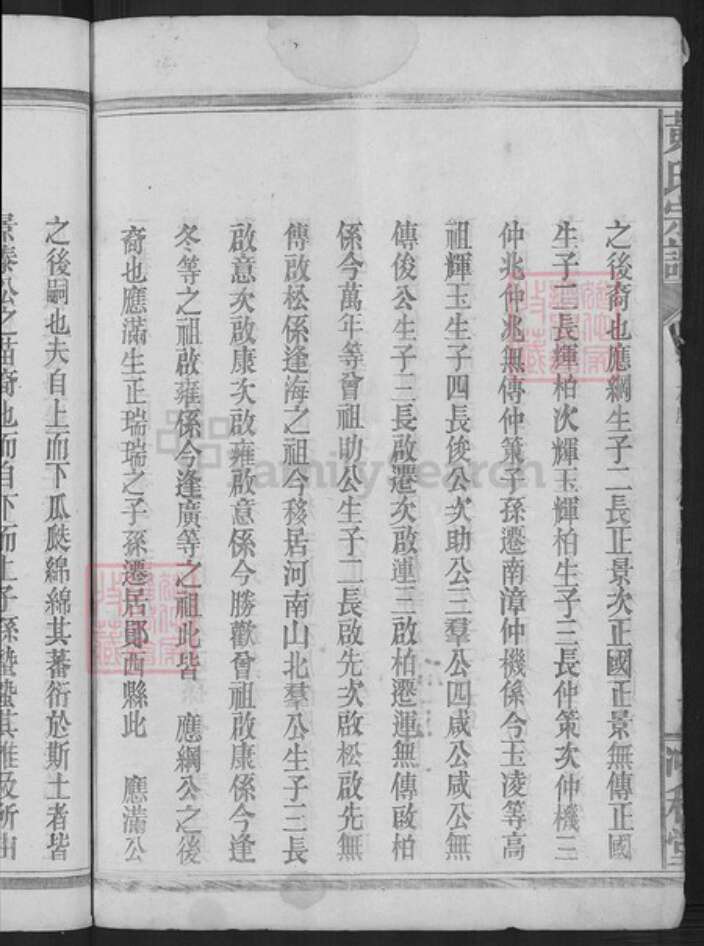 黃氏宗譜
之後裔也應綱生子二長正景次正國正景無傳正國
生子二長輝柏次輝玉輝柏生子三長仲策次仲機三
仲兆仲兆無傳仲策子孫遷南漳仲機係今玉凌等高
祖輝玉生子四長俊公次助公三羣公四咸公咸公無
傳俊公生子三長啟遷次啟連三啟柏遷連無傳啟柏
係今萬年等曾祖助公生子二長啟先次啟松啟先無
傳啟松係逢海之祖今移居河南山北羣公生子三長
啟意次啟康次啟雍啟意係今勝歡曾祖啟康係今逢
冬等之祖啟雍係今逢廣等之祖此皆 應綱公之後
裔也應滿生正瑞瑞之子孫遷居鄖西縣此 應滿公
之後嗣也夫自上而下瓜瓞綿綿其蕃衍於斯土者皆
景泰公之苗裔也而自下而上子孫蟄蟄其推及所由
FamilySearch
特藏
特藏